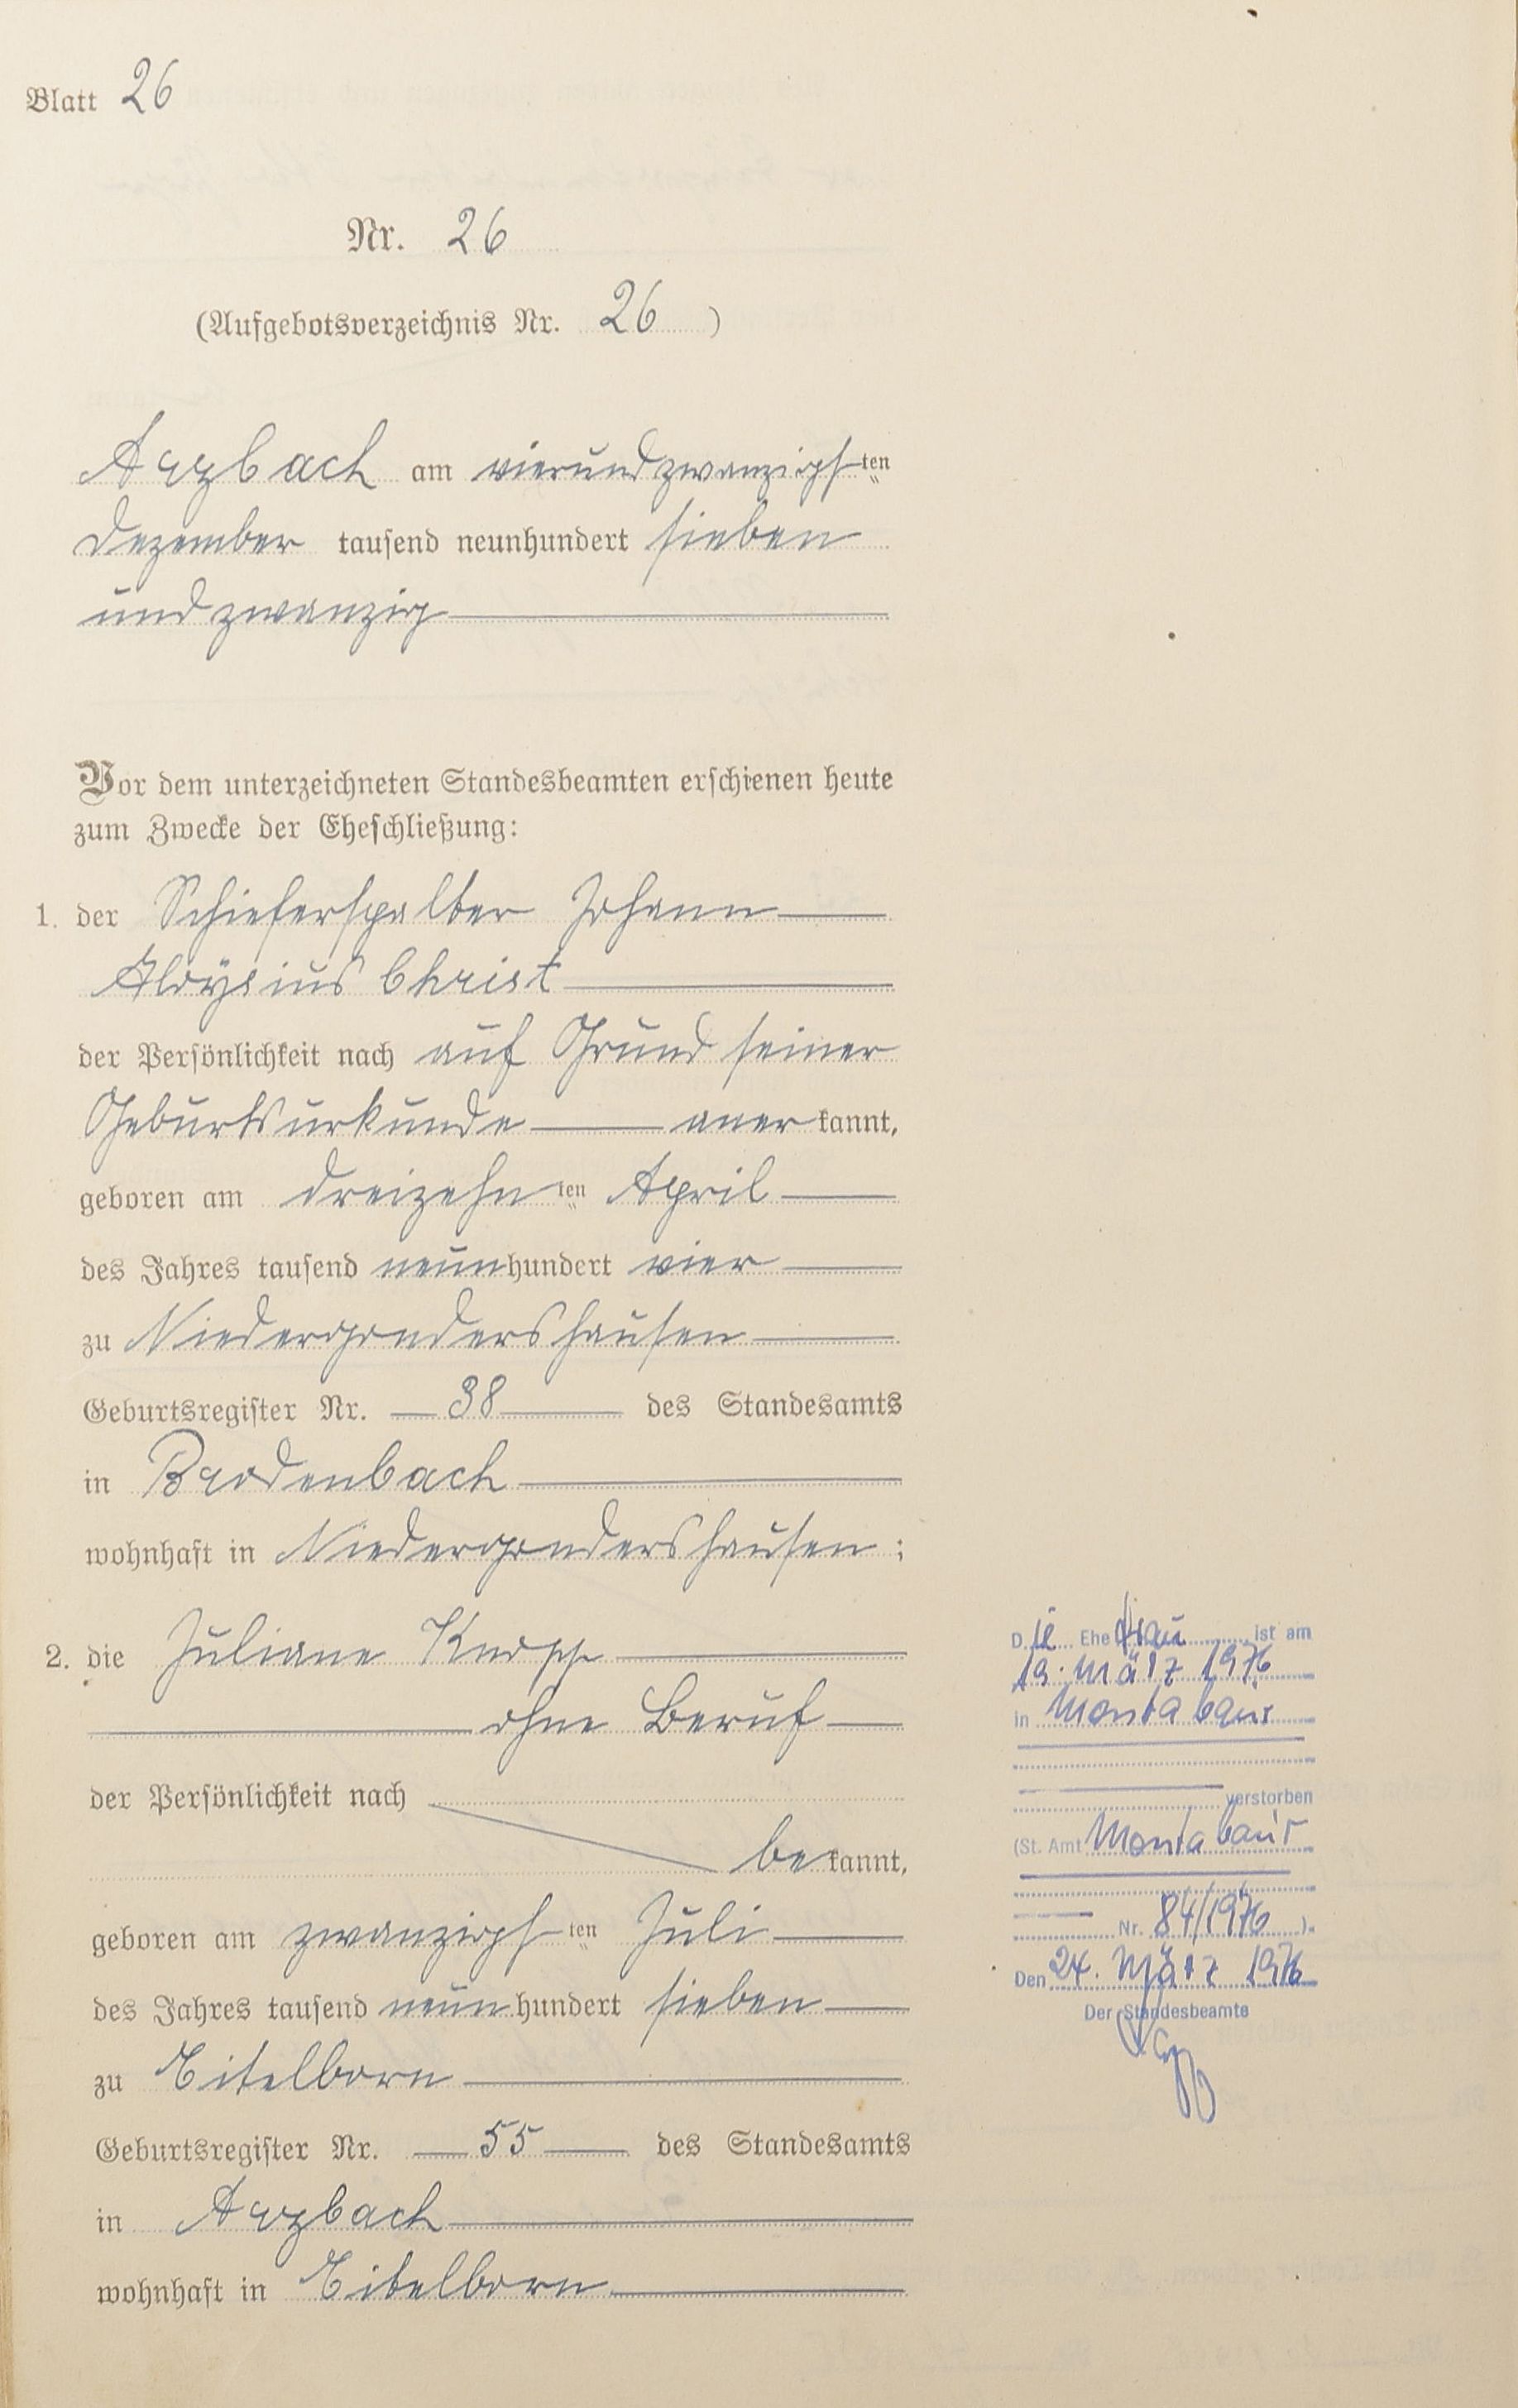 Blatt 26
Nr. 26
(Aufgebotsverzeichnis Nr. 26 )
Arzbach am vierundzwanzigsten
Dezember tausend neunhundert sieben
und zwanzig
Vor dem unterzeichneten Standesbeamten erschienen heute
zum Zwecke der Eheschließung:
1. der Schieferspalter Johann
Aloysius Christ
der Persönlichkeit nach auf Grund seiner
Geburtsurkunde anerkannt,
geboren am dreizehnten April
des Jahres tausend neunhundert vier
zu Niedergondershausen
Geburtsregister Nr. 38 des Standesamts
in Brodenbach
wohnhaft in Niedergondershausen;
2. die Juliane Knopp
ohne Beruf
der Persönlichkeit nach
bekannt,
geboren am zwanzigsten Juli
des Jahres tausend neunhundert sieben
zu Eitelborn
Geburtsregister Nr. 55 des Standesamts
in Arzbach
wohnhaft in Eitelborn
Die Ehefrau ist am
19. März 1976
in Montabaur
verstorben
(St. Amt Montabaur
Nr. 84/1976 ).
Den 24. März 1976
Der Standesbeamte